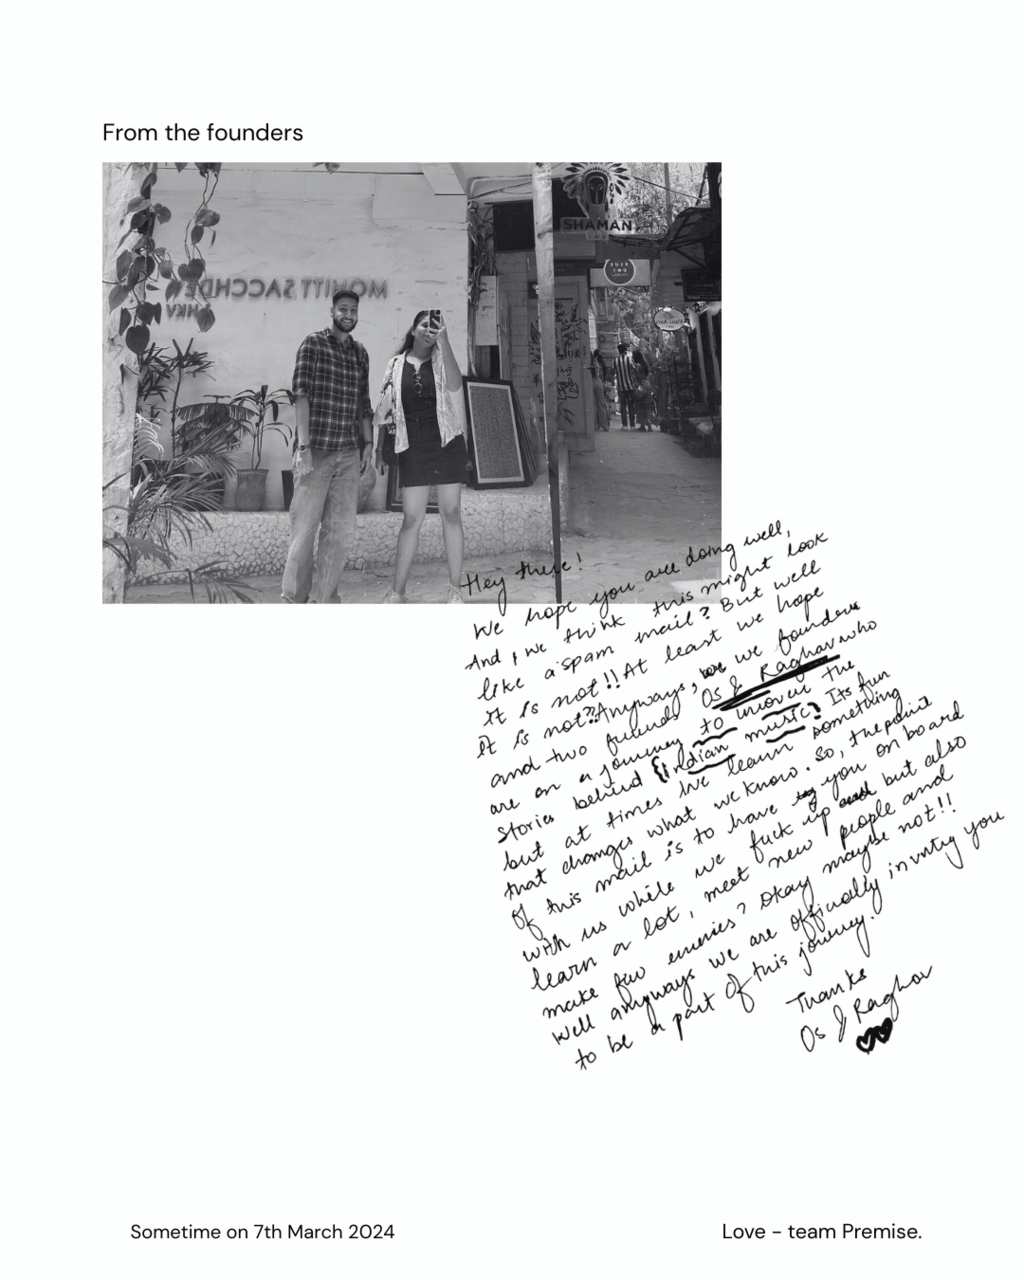 From the founders
SHAMAN
MOHITT SACCHDE
HKV
Hey there!
We hope you are doing well,
And, we think this might look
like a spam mail? But well
it is not!! At least we hope
it is not?? Anyways, we founders
and two friends Os & Raghav who
are on a journey to uncover the
stories behind {indian music} Its fun
but at times we learn something
that changes what we know. So, the point
of this mail is to have you on board
with us while we fuck up but also
learn a lot, meet new people and
make few enemies? Okay maybe not!!
Well anyways we are officially you
to be a part of this journey.
Thanks
Os & Raghav
Sometime on 7th March 2024
Love - team Premise.